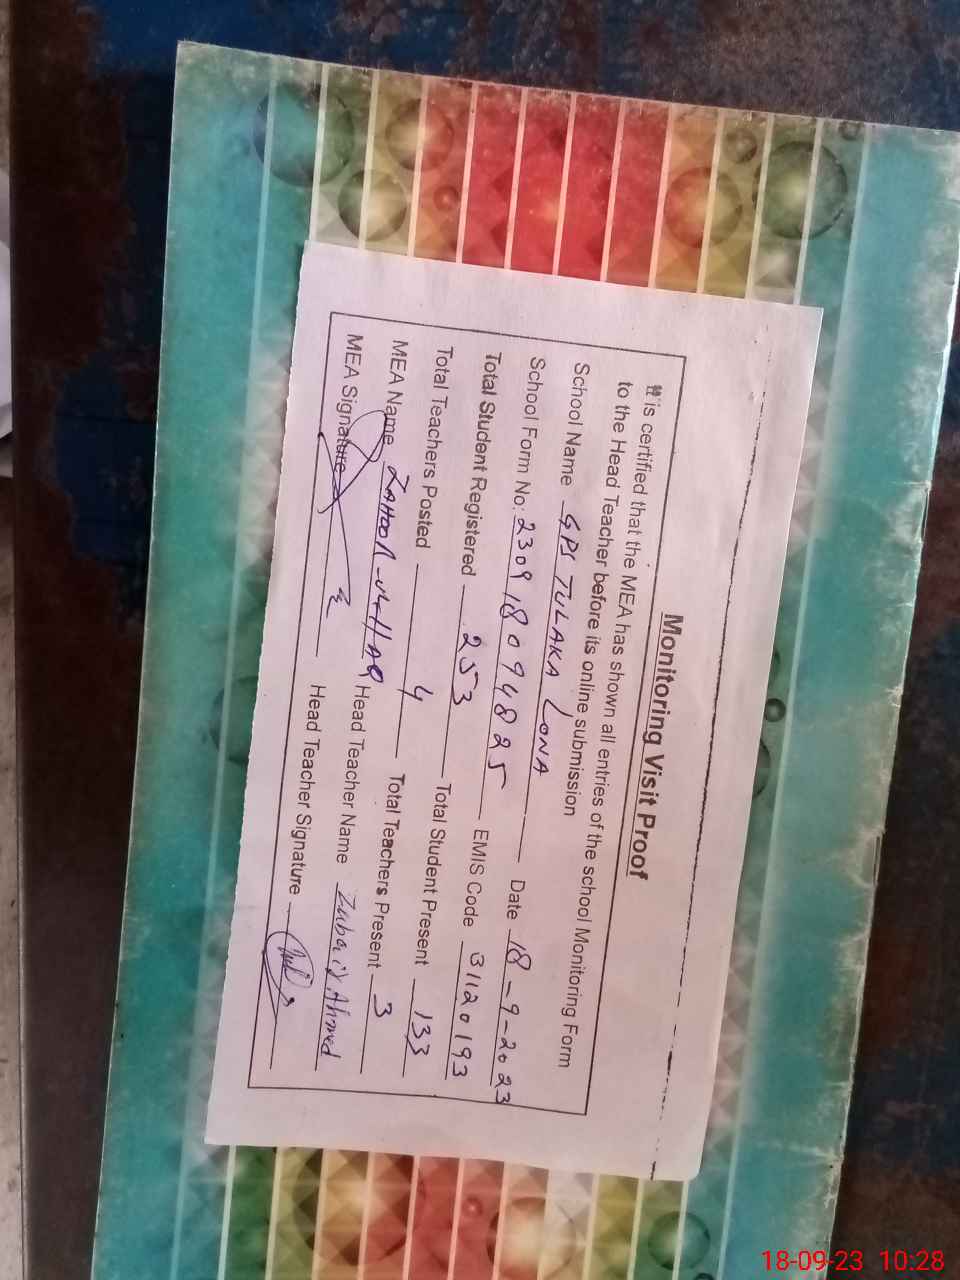 Monitoring Visit Proof
It is certified that the MEA has shown all entries of the school Monitoring Form
to the Head Teacher before its online submission
School Name GPS TULAKA LONA Date 18-9-2023
School Form No: 230918094825 EMIS Code 31120193
Total Student Registered 253 Total Student Present 133
Total Teachers Posted 4 Total Teachers Present 3
MEA Name ZAHOOR-UL-HAQ Head Teacher Name Zubair Ahmed
MEA Signature Head Teacher Signature
18-09-23 10:28